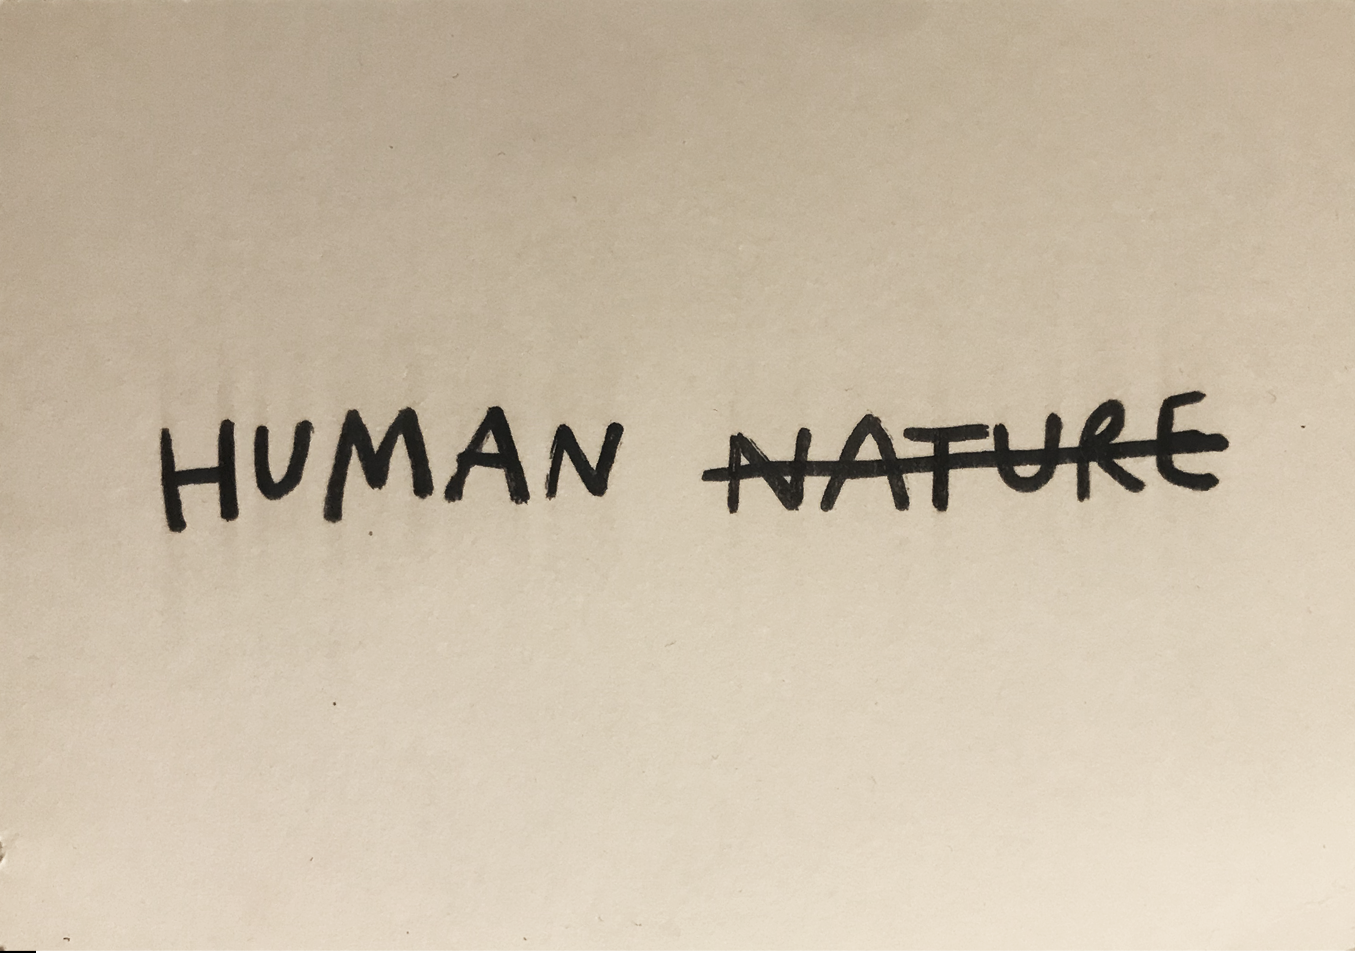 HUMAN NATURE